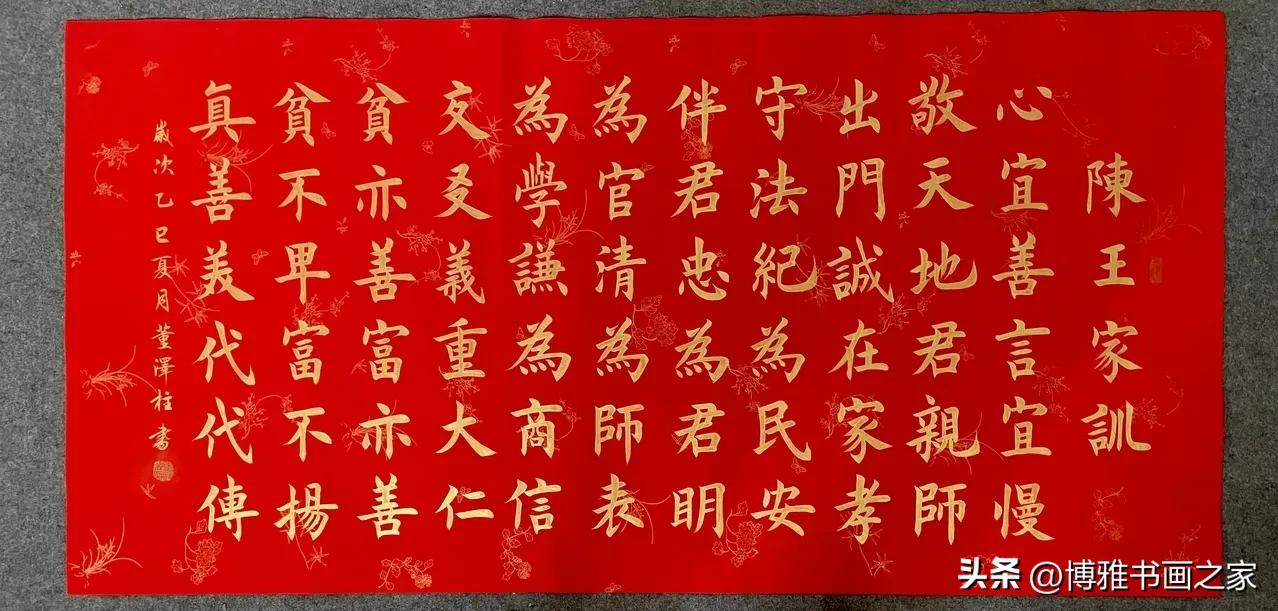 陳王家訓
心宜善言宜慢
敬天地君親師
出門誠在家孝
守法紀為民安
伴君忠為君明
為官清為師表
為學謙為商信
交友義重大仁
貧亦善富亦善
貧不卑富不揚
真善美代代傳
歲次乙巳夏月董澤柱書
头条 @博雅书画之家